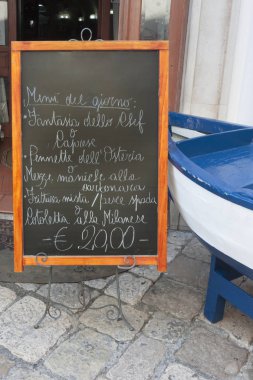 Menù del giorno:
• Fantasia dello Chef
o
Caprese
• Pennette dell'Osteria
• Mezze maniche alla
carbonara
• Frittura mista / pesce spada
o
Cotoletta alla Milanese
- € 20,00 -